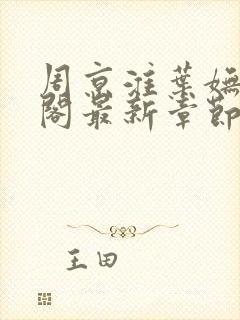 周京淮葉嫵
閣最新章節
王田